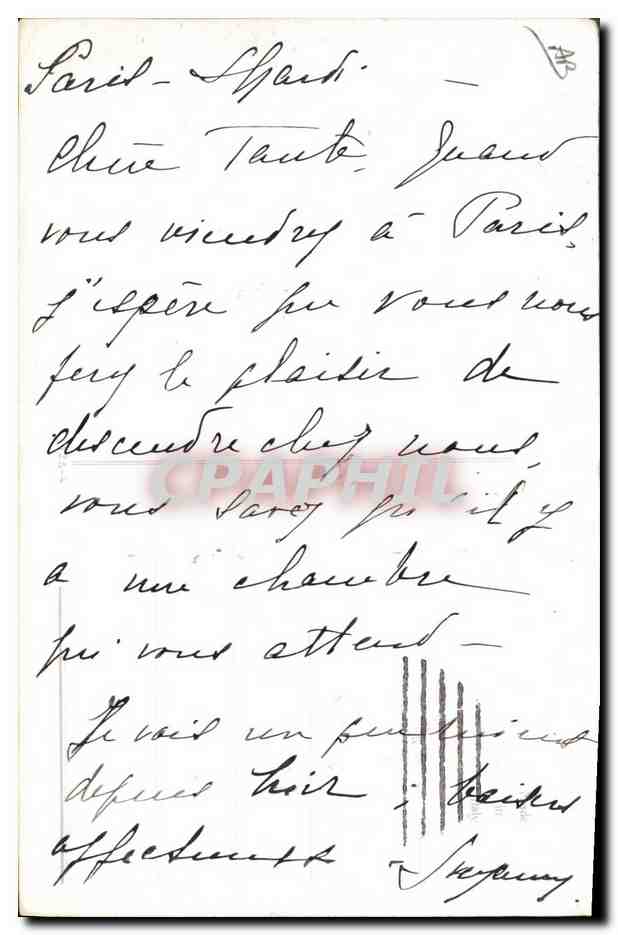 AB
Paris - Mardi -
Chère Tante, Quand
vous viendrez à Paris,
j'espère que vous nous
ferez le plaisir de
descendre chez nous,
CPAPHIL
vous savez qu'il y
a une chambre
qui vous attend -
Je vais un peu mieux
depuis hier ; baisers
affectueux